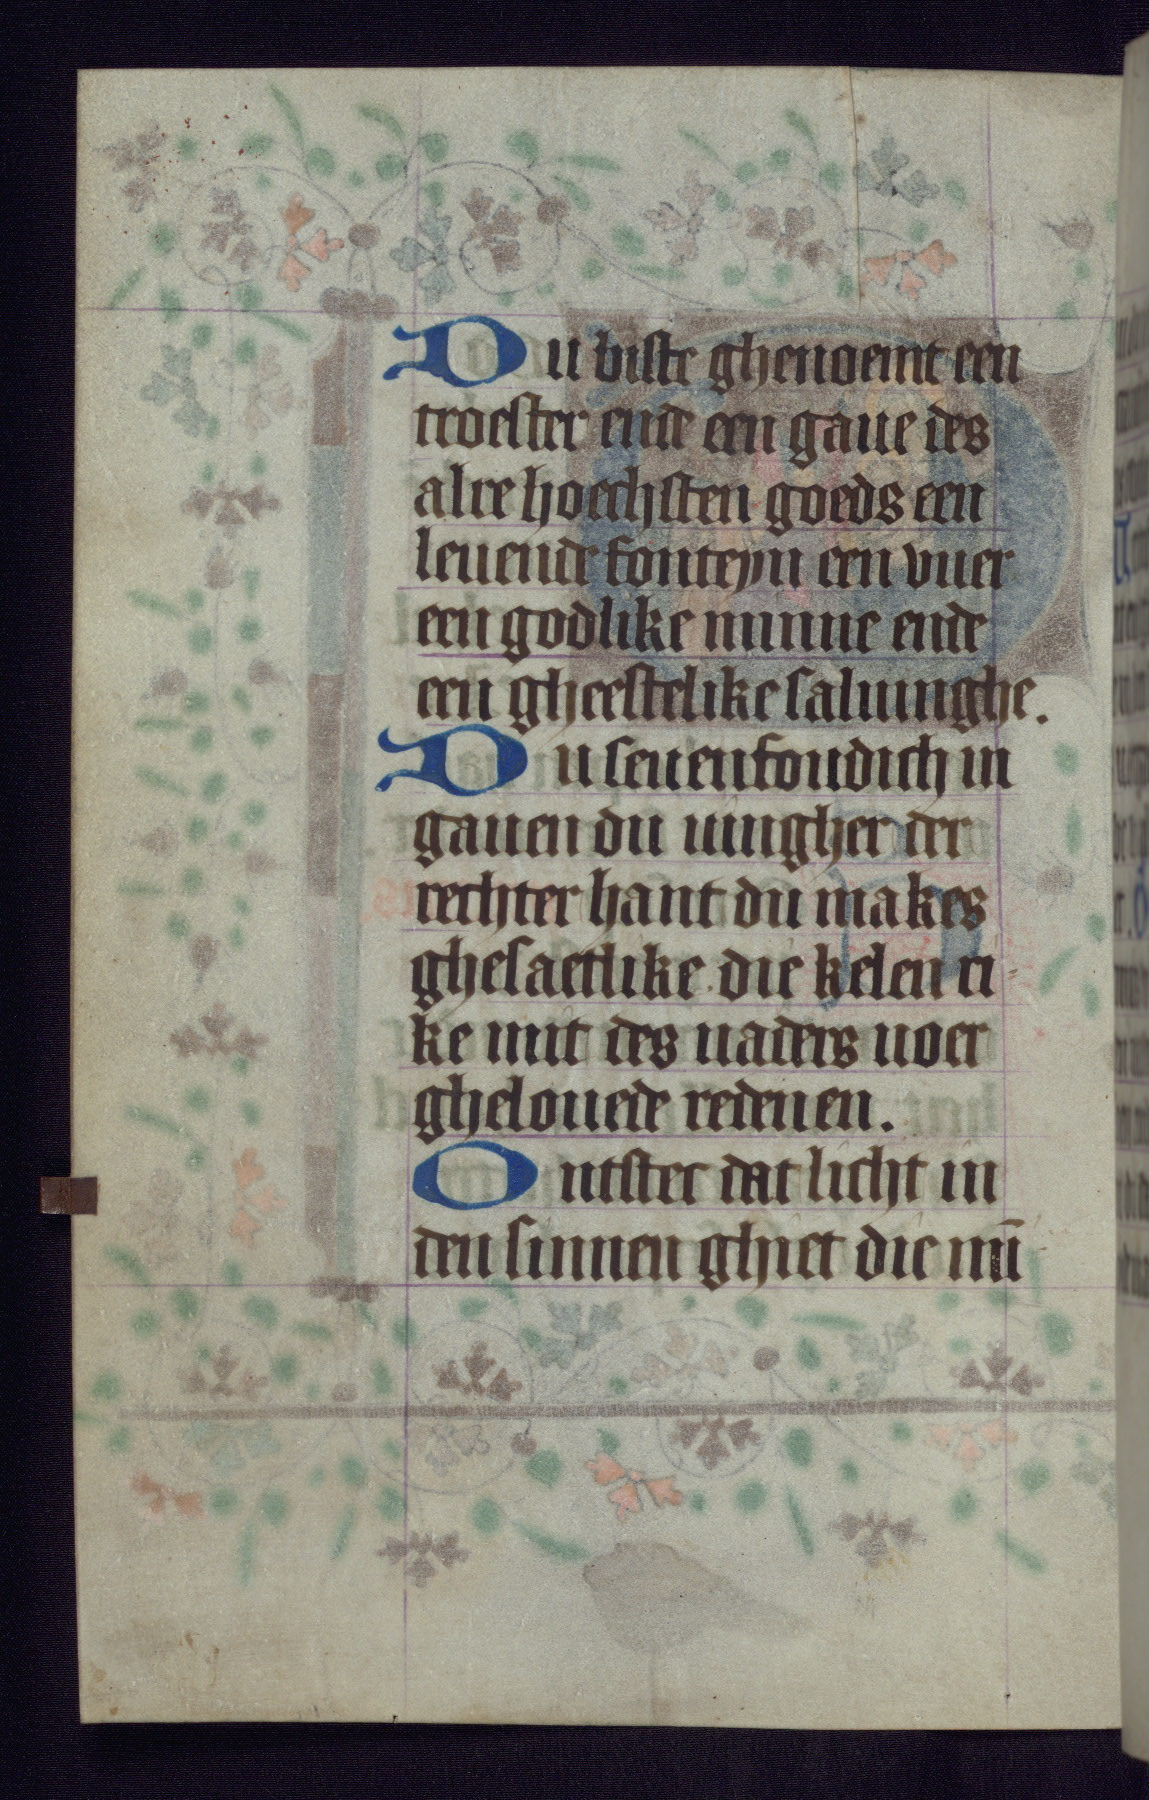 Du biste ghenoemt een
troester ende een gaue des
alre hoechsten goeds een
leuende fonteyn een vuer
een godlike minne ende
een gheestelike saluinghe.
Du seuenfoudich in
gauen du uingher der
rechter hant du makes
ghesaetlike die kelen ri
ke mit des uaders uoer
ghelouede redenen.
Ontstec dat licht in
den sinnen ghiet die mī